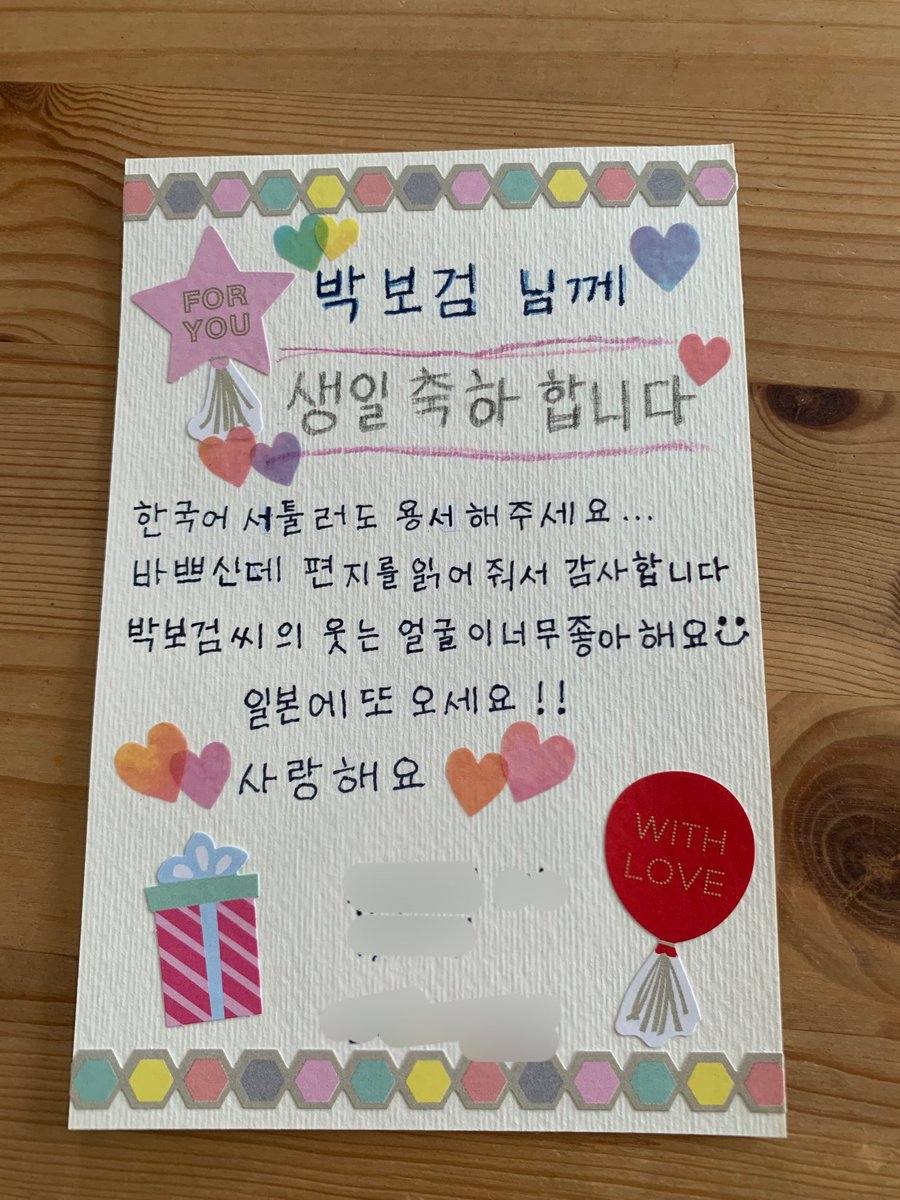 박보검 님께
FOR
YOU
생일 축하 합니다
한국어 서툴러도 용서해주세요...
바쁘신데 편지를 읽어 줘서 감사합니다
박보검씨의 웃는 얼굴이너무좋아해요
일본에 또 오세요!!
사랑해요
WITH
LOVE